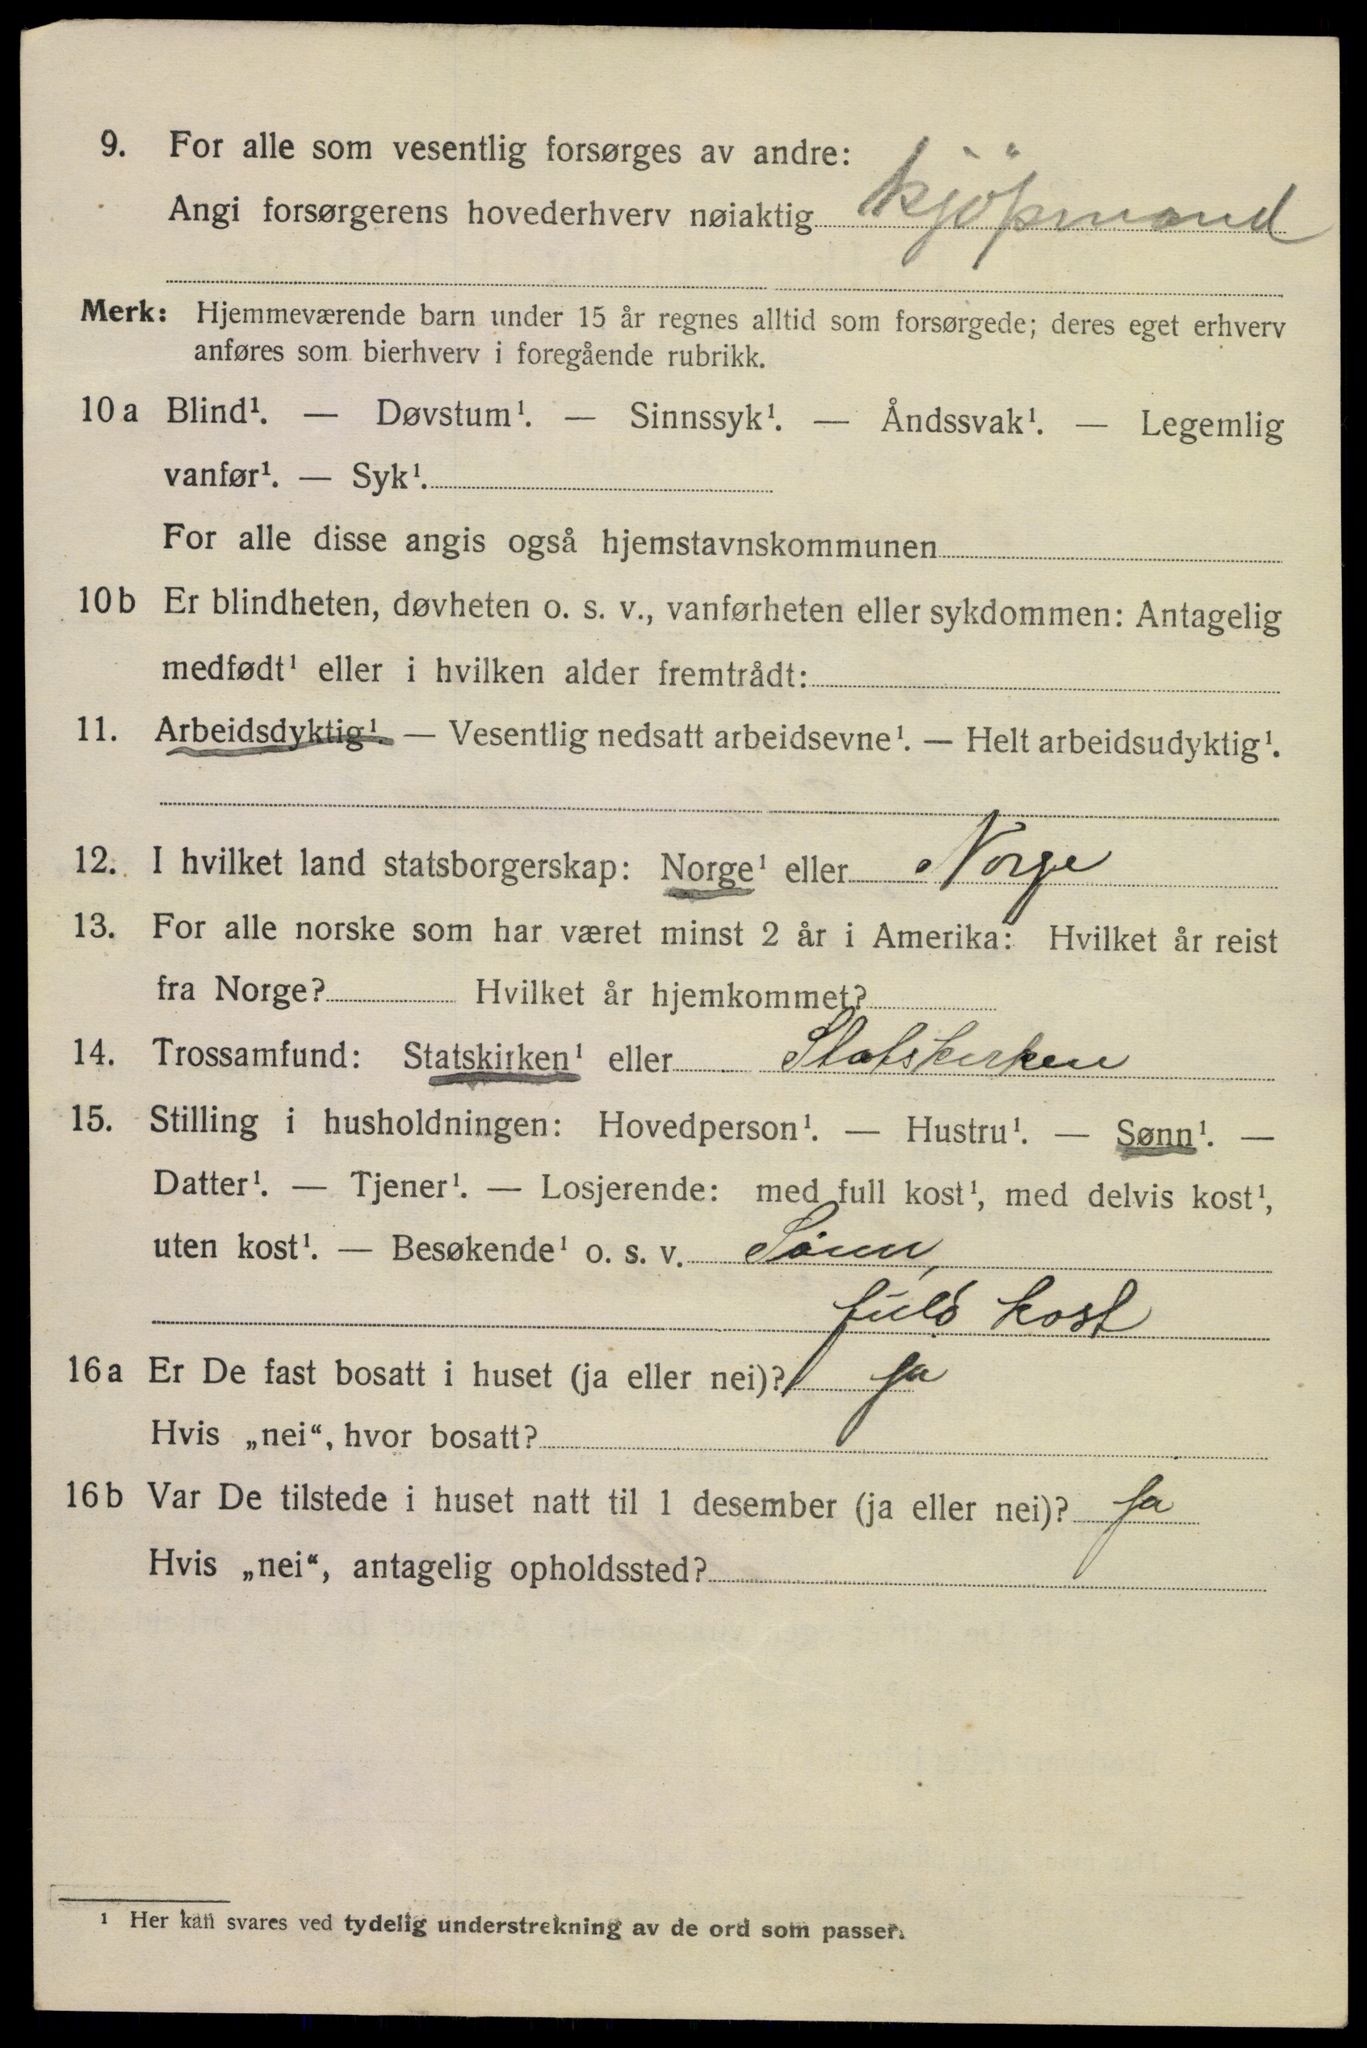 9. For alle som vesentlig forsørges av andre:
Angi forsørgerens hovederhverv nøiaktig kjöpmand
Merk: Hjemmeværende barn under 15 år regnes alltid som forsørgede; deres eget erhverv
anføres som bierhverv i foregående rubrikk.
10 a Blind¹. — Døvstum¹. — Sinnssyk¹. — Åndssvak¹. — Legemlig
vanfør¹. — Syk¹.
For alle disse angis også hjemstavnskommunen
10 b Er blindheten, døvheten o. s. v., vanførheten eller sykdommen: Antagelig
medfødt¹ eller i hvilken alder fremtrådt:
11. Arbeidsdyktig¹. — Vesentlig nedsatt arbeidsevne¹. — Helt arbeidsudyktig¹.
12. I hvilket land statsborgerskap: Norge¹ eller Norge
13. For alle norske som har været minst 2 år i Amerika: Hvilket år reist
fra Norge? Hvilket år hjemkommet?
14. Trossamfund: Statskirken¹ eller Statskirken
15. Stilling i husholdningen: Hovedperson¹. — Hustru¹. — Sønn¹. —
Datter¹. — Tjener¹. — Losjerende: med full kost¹, med delvis kost¹,
uten kost¹. — Besøkende¹ o. s. v. Sönn,
fuld kost
16 a Er De fast bosatt i huset (ja eller nei)? ja
Hvis „nei“, hvor bosatt?
16 b Var De tilstede i huset natt til 1 desember (ja eller nei)? ja
Hvis „nei“, antagelig opholdssted?
¹ Her kan svares ved tydelig understrekning av de ord som passer.